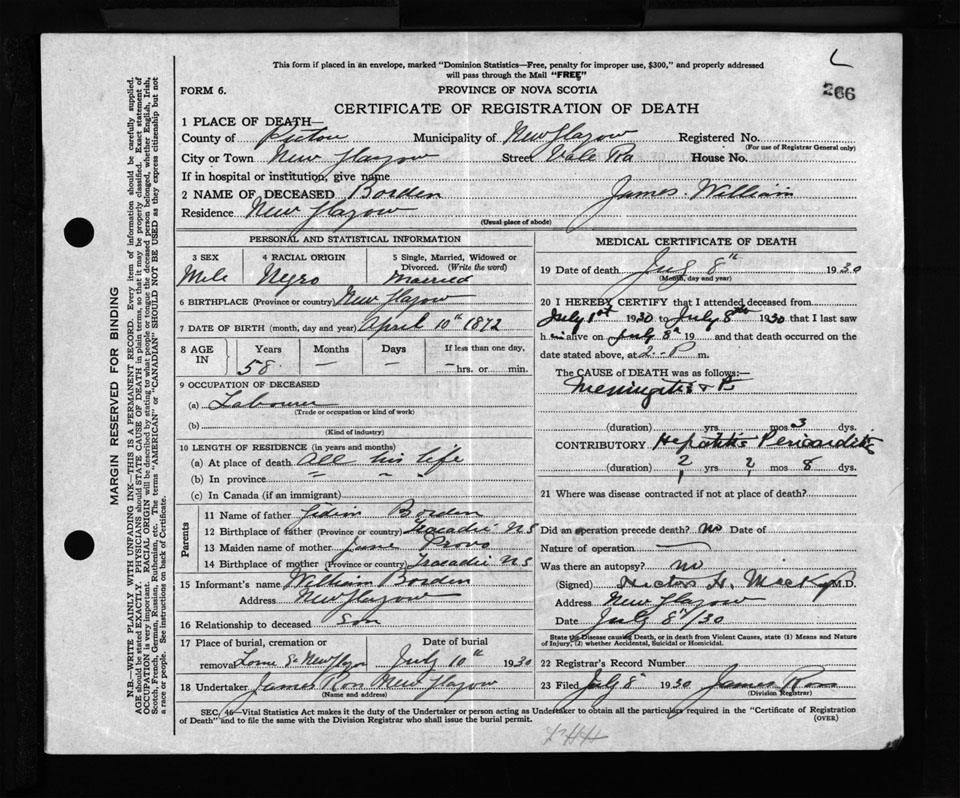 L
266
This form if placed in an envelope, marked "Dominion Statistics—Free, penalty for improper use, $300," and properly addressed
will pass through the Mail "FREE"
FORM 6.
PROVINCE OF NOVA SCOTIA
CERTIFICATE OF REGISTRATION OF DEATH
1 PLACE OF DEATH—
County of Pictou Municipality of New Glasgow Registered No.
(For use of Registrar General only)
City or Town New Glasgow Street Vale Rd House No.
If in hospital or institution, give name
2 NAME OF DECEASED Borden James William
Residence New Glasgow
(Usual place of abode)
PERSONAL AND STATISTICAL INFORMATION
3 SEX
Male
4 RACIAL ORIGIN
Negro
5 Single, Married, Widowed or
Divorced. (Write the word)
Married
6 BIRTHPLACE (Province or country) New Glasgow
7 DATE OF BIRTH (month, day and year) April 10th 1872
8 AGE IN
Years
58
Months
—
Days
—
If less than one day,
— hrs. or min.
9 OCCUPATION OF DECEASED
(a) Labourer
(Trade or occupation or kind of work)
(b)
(Kind of industry)
10 LENGTH OF RESIDENCE (in years and months)
(a) At place of death All his life
(b) In province " " "
(c) In Canada (if an immigrant)
Parents
11 Name of father Borden
12 Birthplace of father (Province or country) Tracadie N S
13 Maiden name of mother Jane
14 Birthplace of mother (Province or country) Tracadie N S
15 Informant's name William Borden
Address New Glasgow
16 Relationship to deceased Son
17 Place of burial, cremation or
removal Lorne St New Glasgow
Date of burial
July 10th 1930
18 Undertaker James Ross New Glasgow
(Name and address)
MEDICAL CERTIFICATE OF DEATH
19 Date of death July 8th 1930
(Month, day and year)
20 I HEREBY CERTIFY that I attended deceased from
July 1st 1930 to July 8th 1930 that I last saw
h im alive on July 8th 19 and that death occurred on the
date stated above, at 2 - P m.
The CAUSE of DEATH was as follows:—
Meningitis
(duration) yrs mos 3 dys.
CONTRIBUTORY Hepatitis Pericarditis
(duration) 2 yrs 2 mos 8 dys.
21 Where was disease contracted if not at place of death?
Did an operation precede death? no Date of
Nature of operation —
Was there an autopsy? no
(Signed) Hector H. M.D.
Address New Glasgow
Date July 8th/30
State the Disease causing Death, or in death from Violent Causes, state (1) Means and Nature
of Injury, (2) whether Accidental, Suicidal or Homicidal.
22 Registrar's Record Number
23 Filed July 8th 1930 James Ross
(Division Registrar)
SEC. 46—Vital Statistics Act makes it the duty of the Undertaker or person acting as Undertaker to obtain all the particulars required in the "Certificate of Registration
of Death" and to file the same with the Division Registrar who shall issue the burial permit.
(OVER)
MARGIN RESERVED FOR BINDING
N.B.—WRITE PLAINLY WITH UNFADING INK—THIS IS A PERMANENT RECORD. Every item of information should be carefully supplied.
AGE should be stated EXACTLY. PHYSICIANS should STATE CAUSE OF DEATH in plain terms, so that it may be properly classified. Exact statement of
OCCUPATION is very important. RACIAL ORIGIN will be described by stating to what people or tongue the deceased person belonged, whether English, Irish,
Scotch, French, German, Russian, Ruthenian, etc. The terms "AMERICAN" or "CANADIAN" SHOULD NOT BE USED as they express citizenship but not
a race or people. See instructions on back of Certificate.